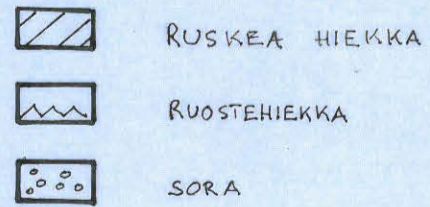 RUSKEA HIEKKA
RUOSTEHIEKKA
SORA